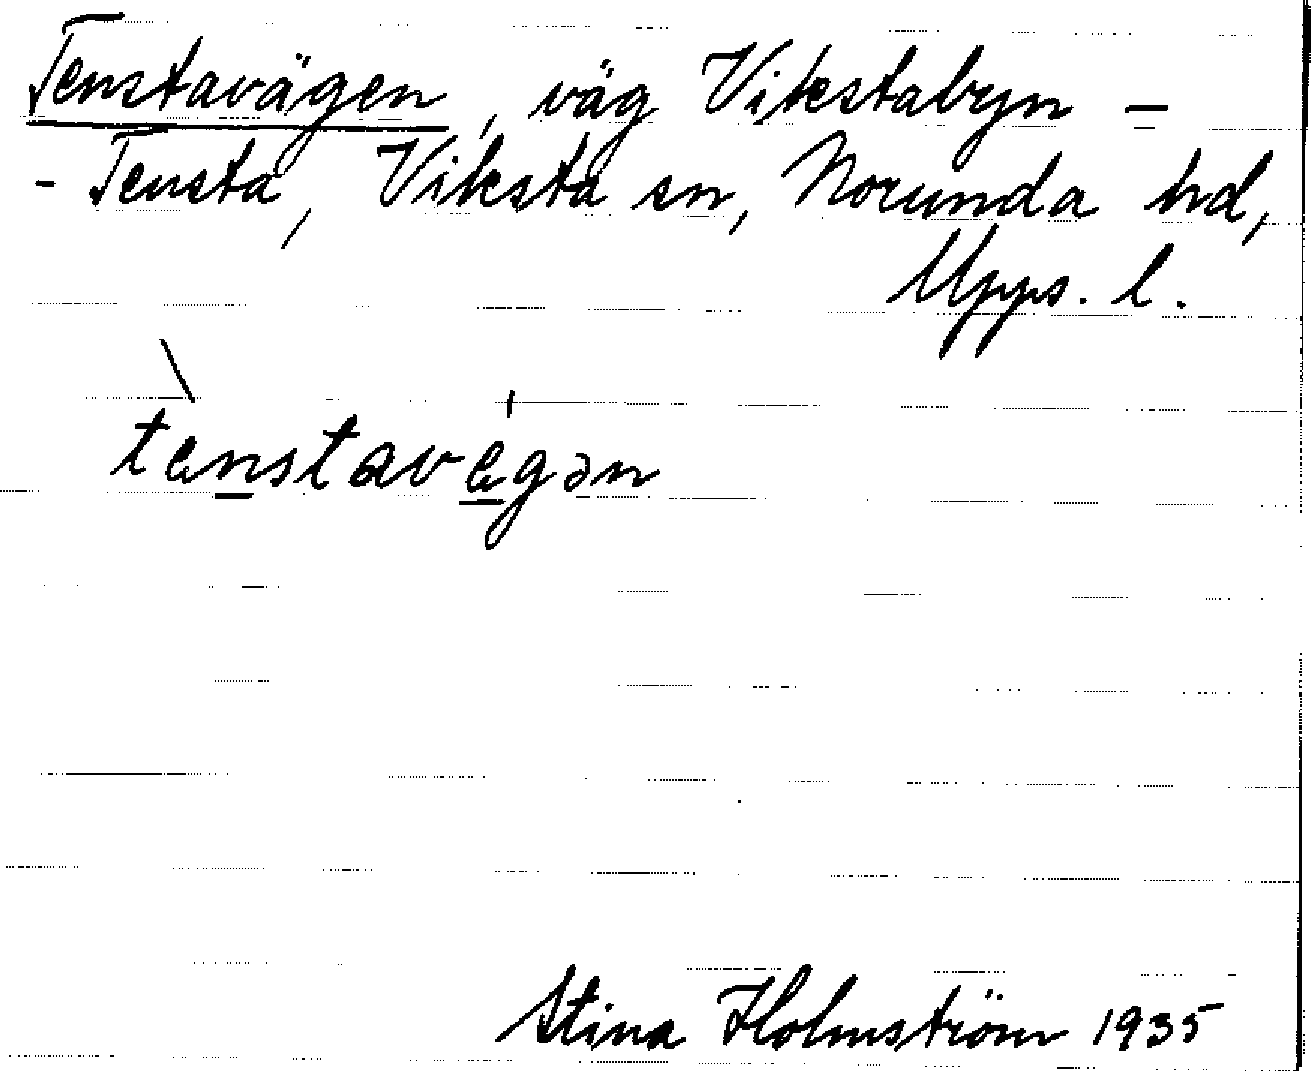 Tenstavägen, väg Vikstabyn –
- Tensta, Viksta sn, Norunda hd,
Upps. l.
tenstavegən
Stina Holmström 1935